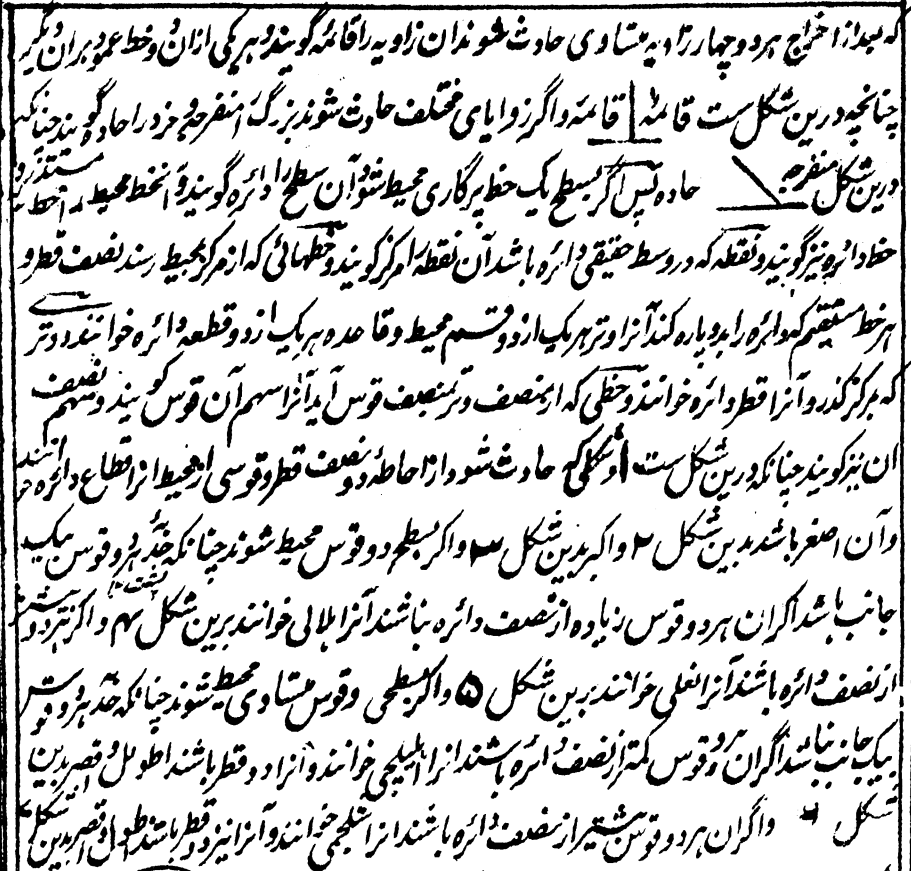 که بعد از اخراج هر دو چهار زاویه متساوی حادث شوند آن زاویه را قائمه گویند و هر یکی از آن دو خط عمود بر آن دیگر
چنانچه درین شکل ست قائمه قائمه و اگر زوایای مختلف حادث شوند بزرگ را منفرجه و خرد را حاده گویند چنانکه
درین شکل منفرجه حاده پس اگر بسطح یک خط پرکاری محیط شود آن سطح را دائره گویند و آنخط محیط
خط دائره نیز گویند و نقطه که در وسط حقیقی دائره باشد آن نقطه را مرکز گویند و خطهائی که از مرکز بمحیط رسند نصف قطر و
هر خط مستقیم که دائره را بدو پاره کند آنرا وتر هر یک از دو قسم محیط و قاعده هر یک از دو قطعه دائره خوانند و وتری
که بر مرکز گذرد آنرا قطر دائره خوانند و خطی که از منصف وتر بمنصف قوس آید آنرا سهم آن قوس گویند و سهم نصیف
آن نیز گویند چنانکه درین شکل ست ۱ و شکلی که حادث شود از احاطه دو نصف قطر و قوسی از محیط آنرا قطاع دائره خوانند
و آن اصغر باشد بدین شکل ۲ و اکبر بدین شکل ۳ و اگر بسطح دو قوس محیط شوند چنانکه حدبه هر دو قوس بیک
جانب باشد اگر آن هر دو قوس زیاده از نصف دائره نباشند آنرا هلالی خوانند برین شکل ۴ و اگر هر دو بیشتر
از نصف دائره باشند آنرا نعلی خوانند برین شکل ۵ و اگر بسطحی دو قوس متساوی محیط شوند چنانکه حدبه هر دو قوس
بیک جانب نباشد اگر آن هر دو قوس کمتر از نصف دائره باشند آنرا اهلیلجی خوانند و آنرا دو قطر باشند اطول و اقصر بدین
شکل ۶ و اگر آن هر دو قوس بیشتر از نصف دائره باشند آنرا شلجمی خوانند و آنرا نیز دو قطر باشند اطول و اقصر بدین شکل